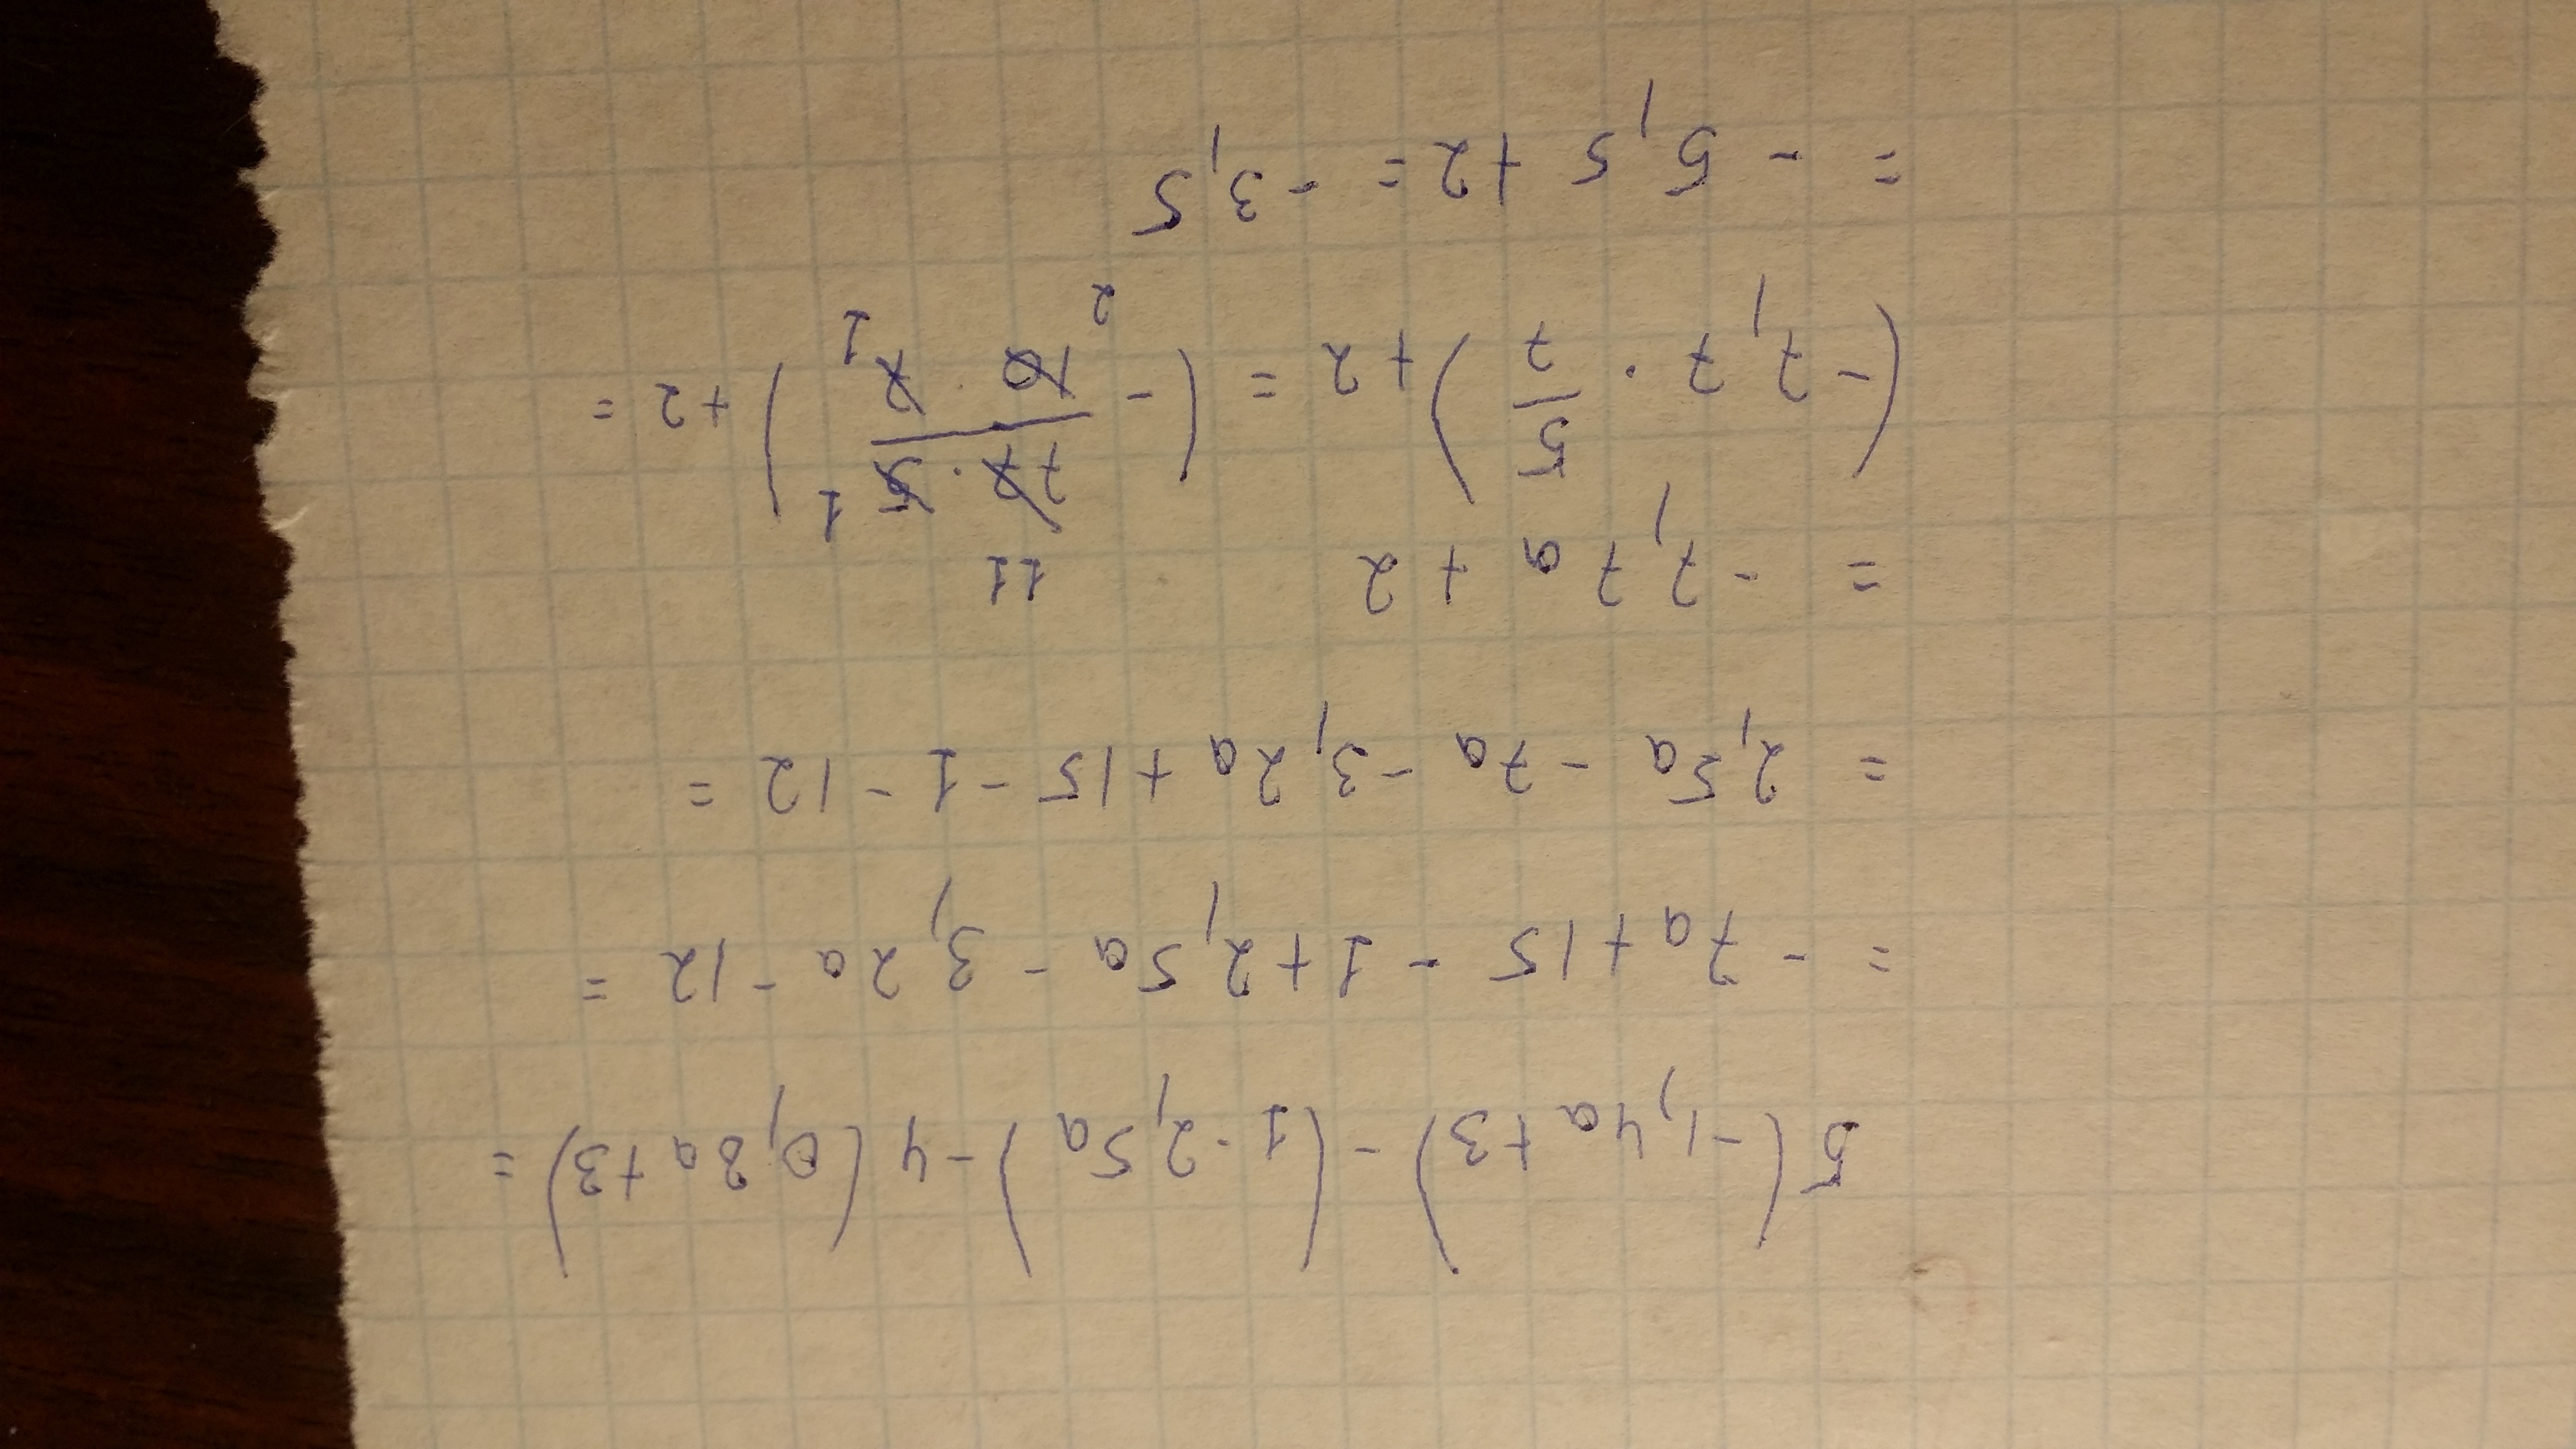 5(-1,4a+3)-(1-2,5a)-4(0,8a+3)=
=-7a+15-1+2,5a-3,2a-12=
=2,5a-7a-3,2a+15-1-12=
=-7,7a+2
(-7,7·5/7)+2=(-77 11·5 1/10 2·7 1)+2=
=-5,5+2=-3,5